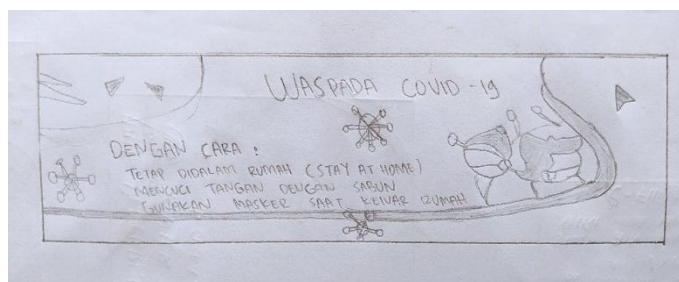 WASPADA COVID-19
DENGAN CARA :
TETAP DIDALAM RUMAH (STAY AT HOME)
MENCUCI TANGAN DENGAN SABUN
GUNAKAN MASKER SAAT KELUAR RUMAH